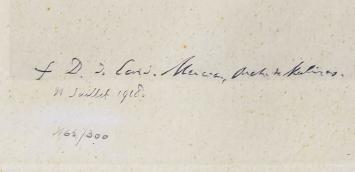 + D. J. Card. Mercier, Arch. de Malines.
21 Juillet 1918.
166/300